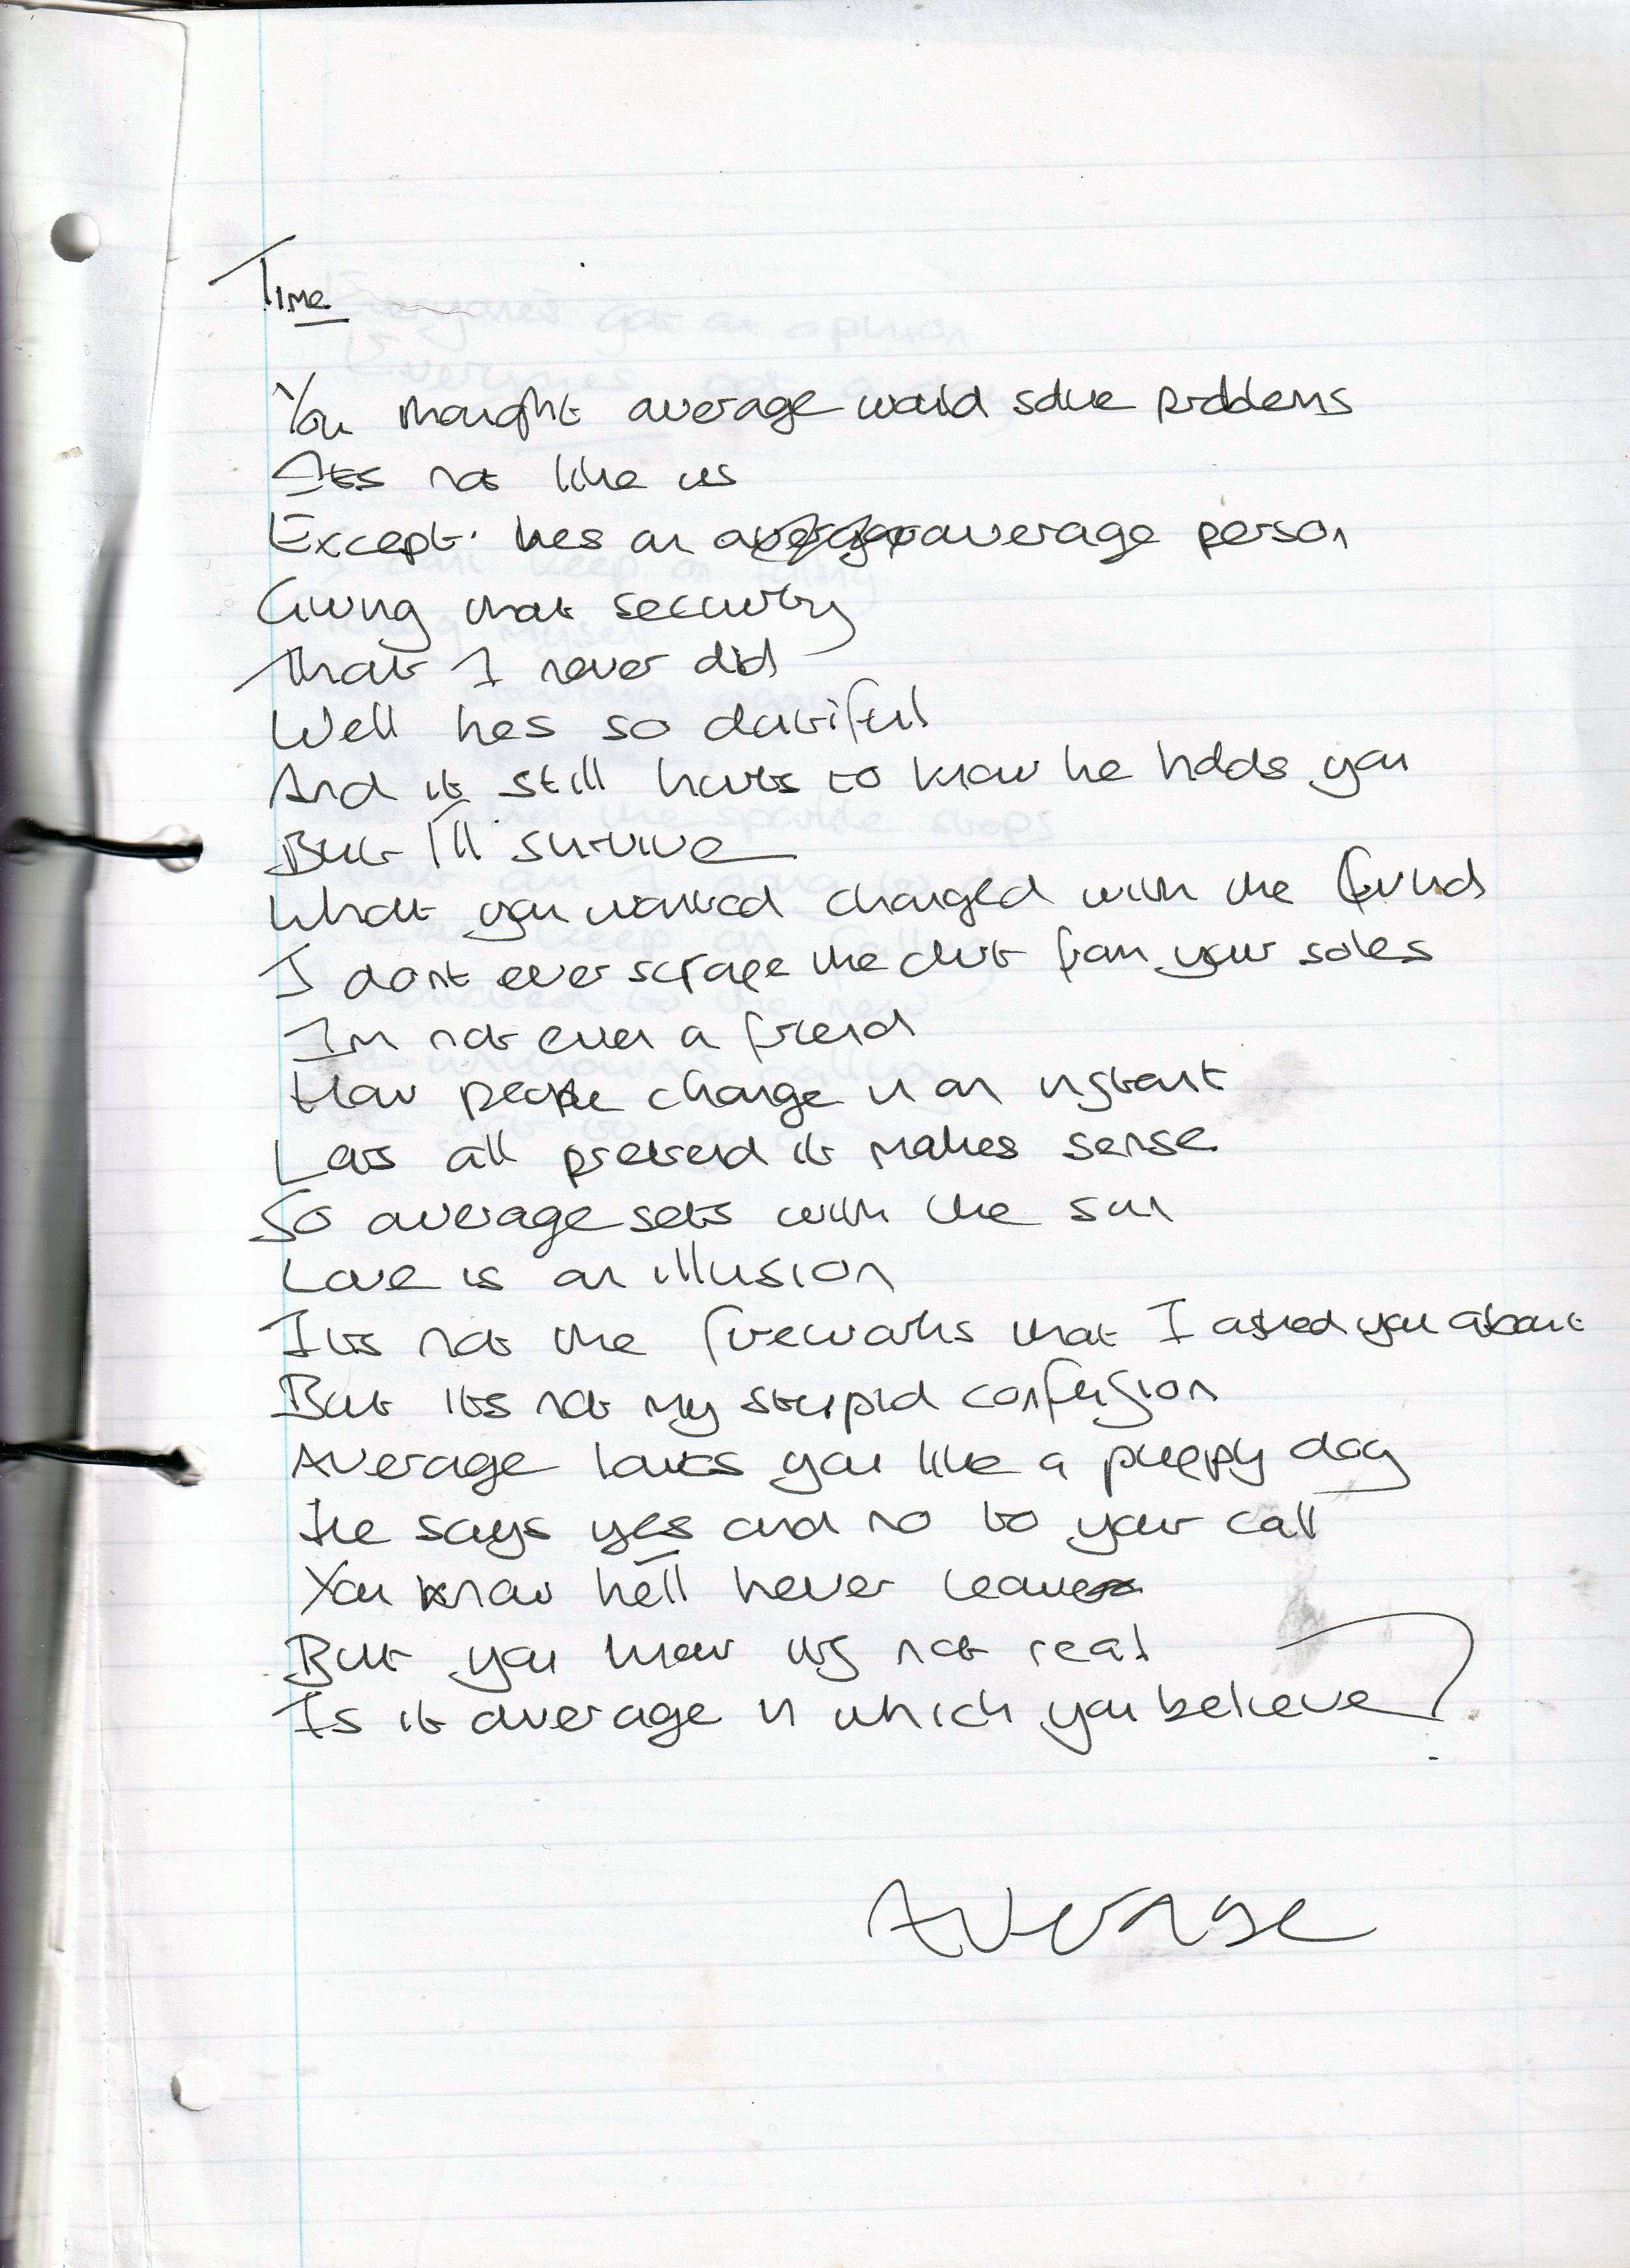 Time
You thought average would solve problems
Its not like us
Except hes an average average person
Giving that security
That I never did
Well hes so dutiful
And it still hurts to know he holds you
But I'll survive
What you wanted changed with the
I dont even scrape the dirt from your soles
Im not even a friend
How people change in an instant
Lets all pretend it makes sense
So average sets with the sun
Love is an illusion
Its not the fireworks that I asked you about
But its not my stupid confusion
Average loves you like a puppy dog
He says yes and no to your call
You know he'll never leave
But you know its not real
Is it average in which you believe?
Average